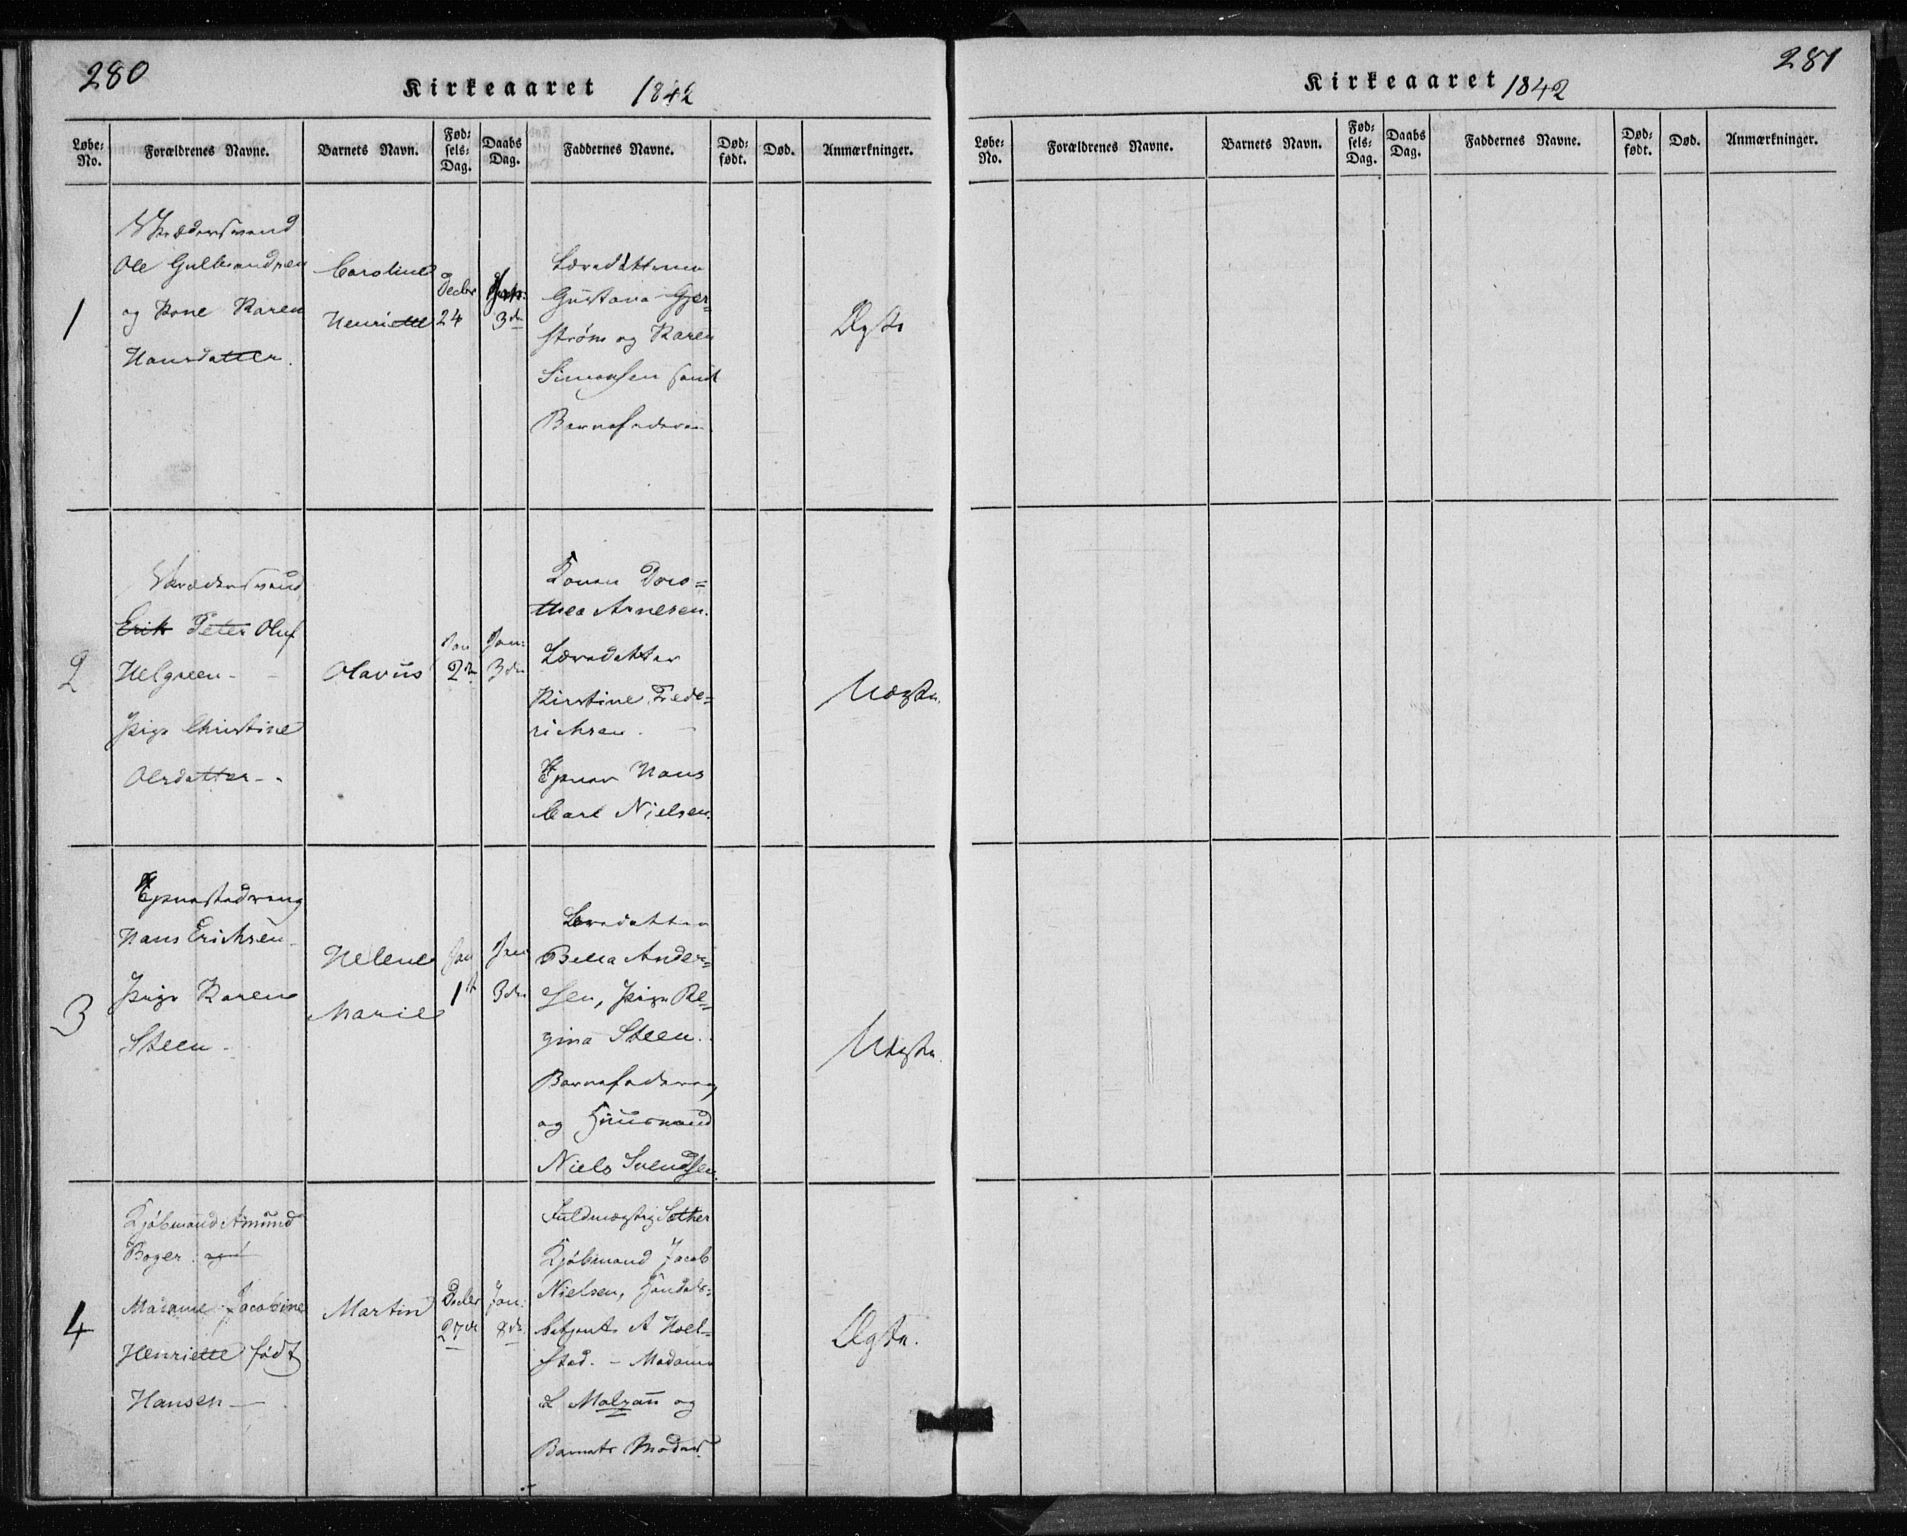 280
Kirkeaaret 1842
Løbe-No. Forældrenes Navne. Barnets Navn. Fødsels-Dag. Daabs Dag. Faddernes Navne. Død-født. Død. Anmærkninger.
1
Ole Gulbrandsen
og Kone Karen
Hansdatter.
Caroline
Henriette
Decbr
24
Jan:
3de
Gustava Gjer=
strøm og Karen
Simonsen samt
Barnefaderen.
Ægte
2
Erik Peter Oluf
Helgreen -
Pige Christine
Olsdatter -
Olavus
Jan
2de
Jan:
3de
Konen Doro=
thea Arnesen.
Kirstine Frede=
richsen.
Hans
Carl Nielsen.
Uægte.
3
Hans Erichsen
Pige Karen
Steen -
Helene
Marie
Jan
1ste
Jan
3de
Bella Ander=
sen, Pige Re=
gina Steen.
Barnefaderen
og Huusmand
Niels Svendsen.
Uægte.
4
Kjøbmand Amund
Boger og
Madame Jacobine
Henriette født
Hansen -
Martin
Decbr
27de
Jan:
8de
Fuldmægtig Sæther
Kjøbmand Jacob
Nielsen, Handels=
betjent A Hoel=
stad. - Madame
L Malzau og
Barnets Moder.
Ægte.
281
Kirkeaaret 1842
Løbe-No. Forældrenes Navne. Barnets Navn. Fød-sels-Dag. Daabs Dag. Faddernes Navne. Død-født. Død. Anmærkninger.